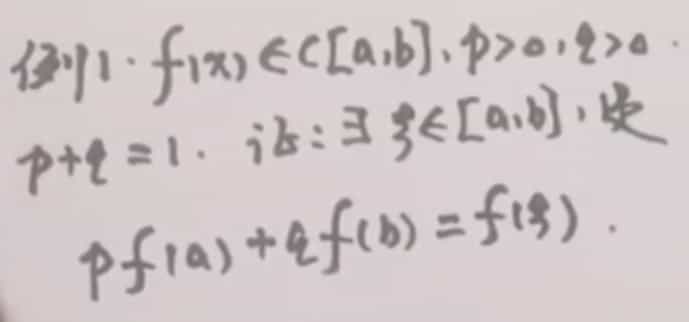 例1. f(x)∈C[a,b]、p>0,q>0.
p+q=1. 证:∃ξ∈[a,b],使
pf(a)+qf(b)=f(ξ).